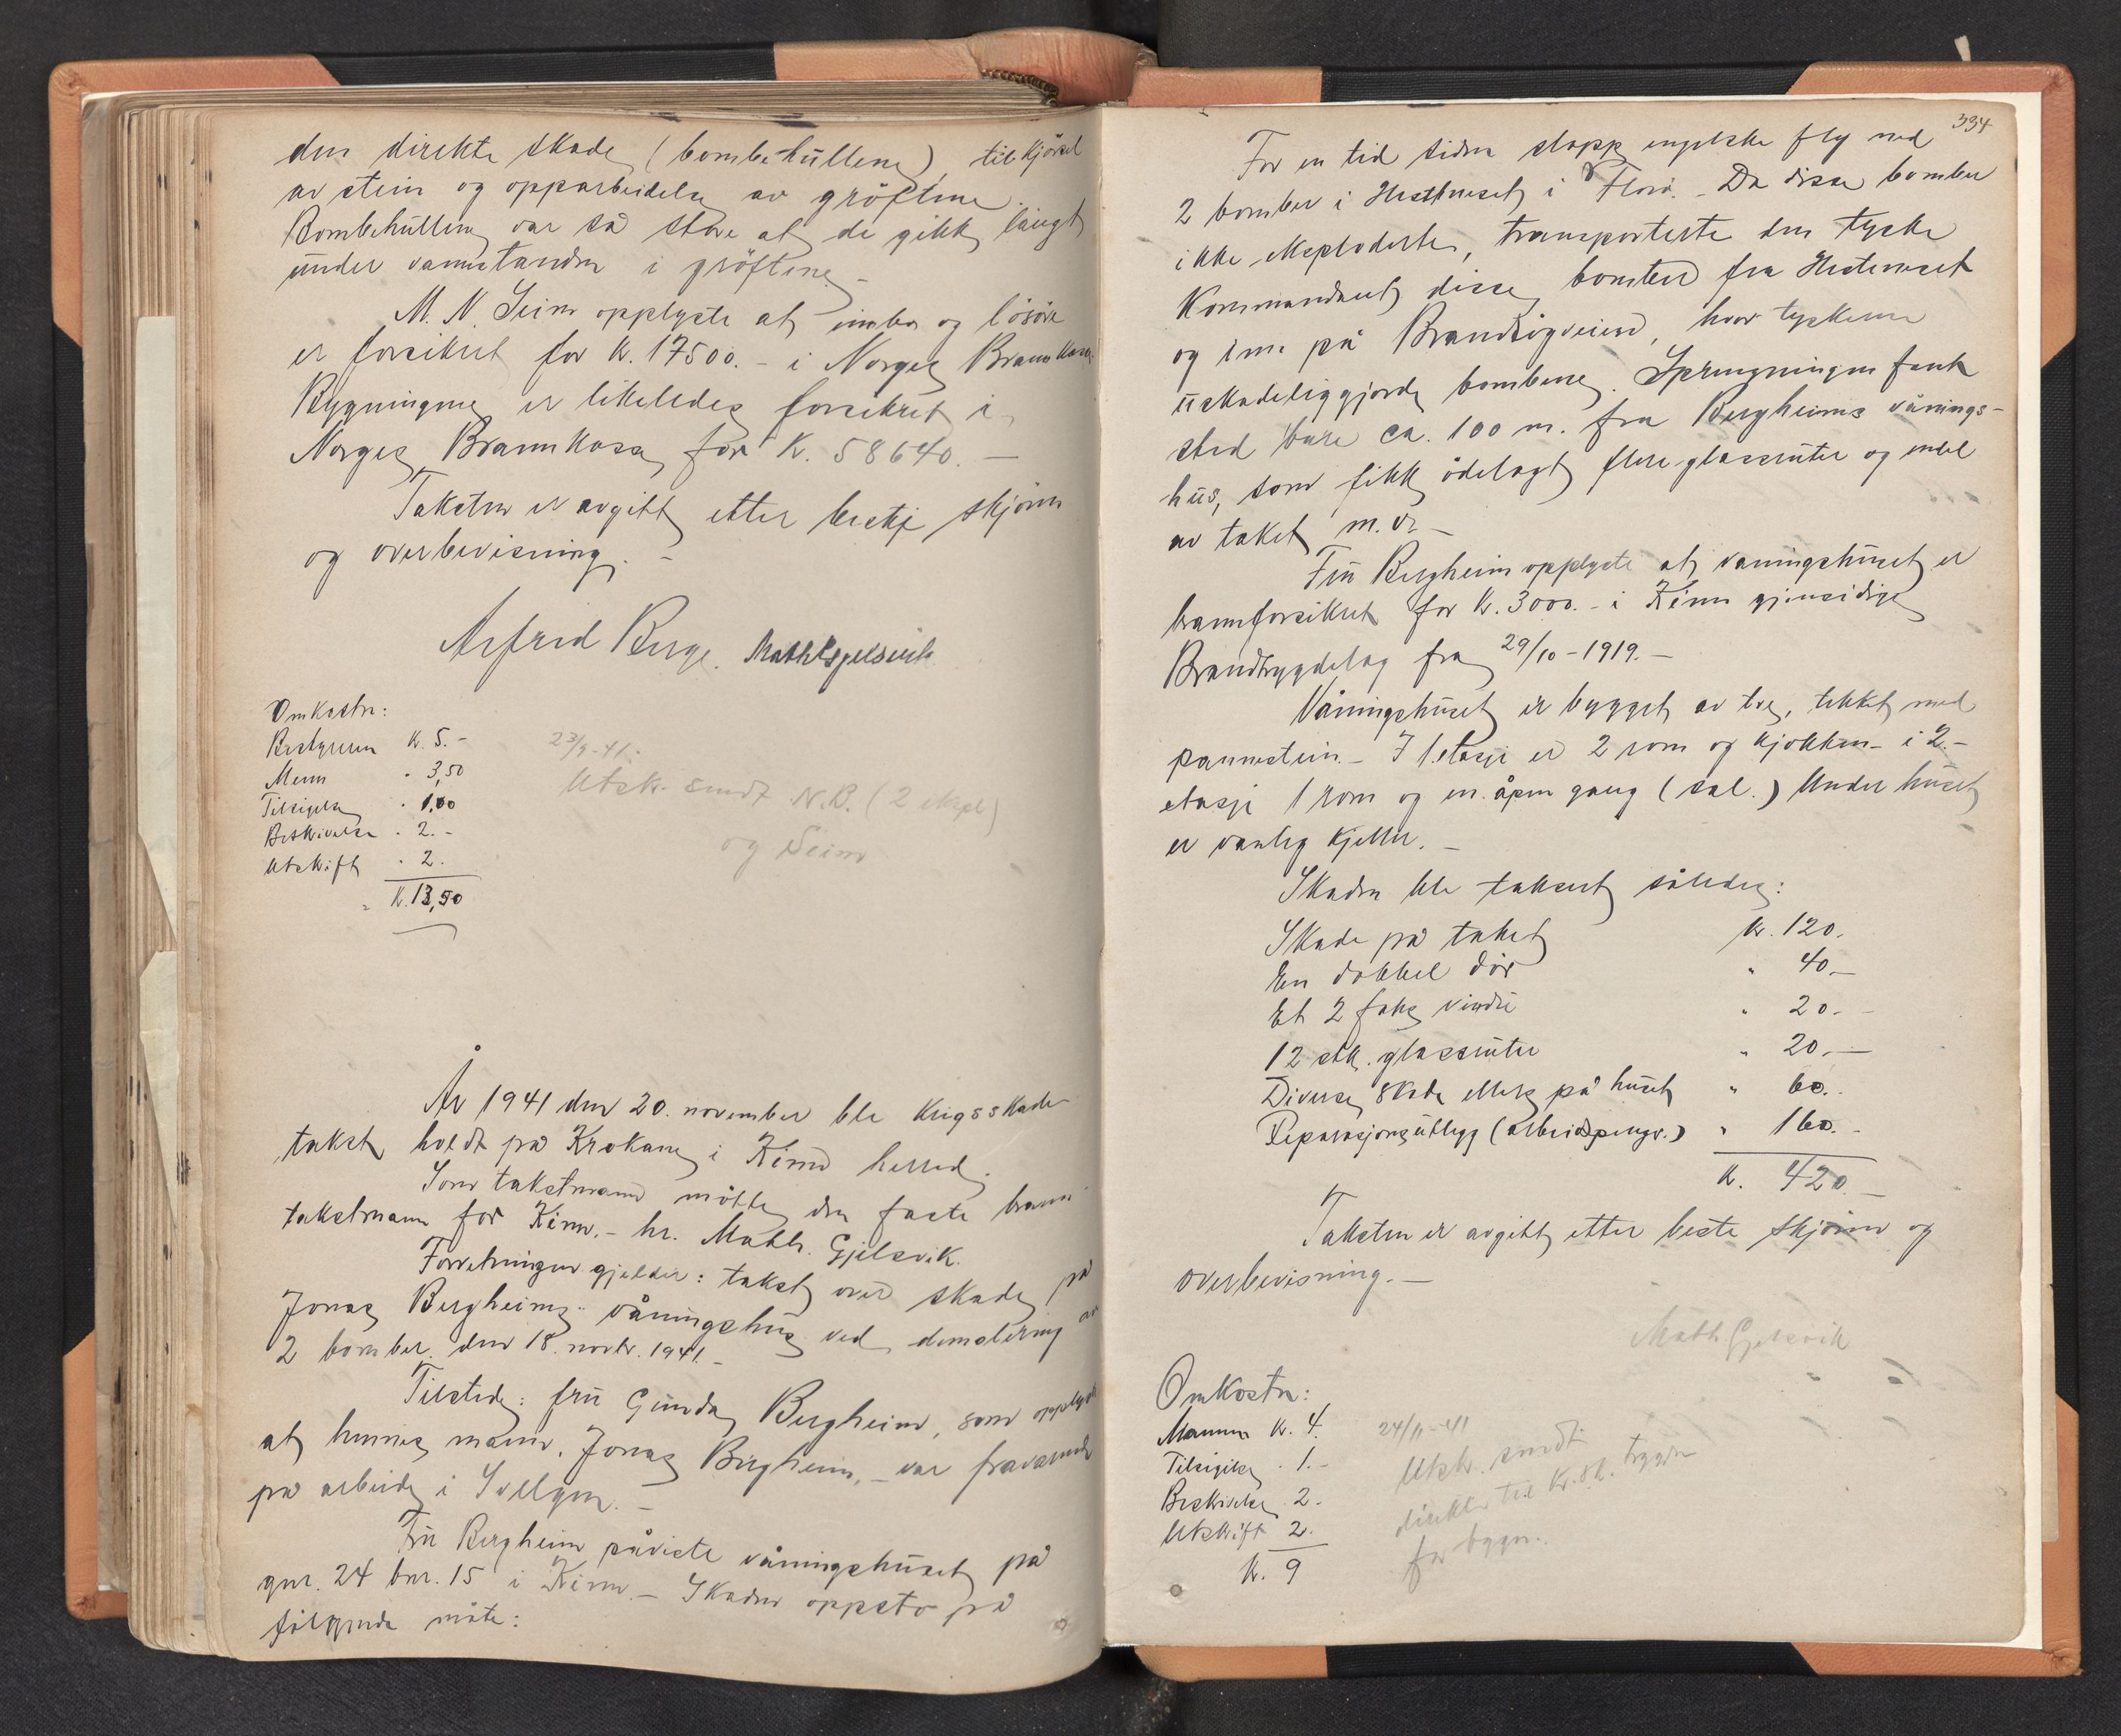 den direkte skade (bombehullene), tilkjörsel
av stein og opparbeidelse av gröftene.
Bombehullene var så store at de gikk langt
under vannstanden i gröftene. –
M. N. Seim opplyste at innbo og lösöre
er forsikret for kr. 17500.– i Norges Brannkasse.
Bygningene er likeledes forsikret i
Norges Brannkasse for kr. 58640.–
Taksten er avgitt etter beste skjönn
og overbevisning. –
Arfred Berge. Math Gjelsvik
Omkostn:
Bestyreren kr. 5.–
Menn " 3,50
Tilsigelse " 1,00
Beskrivelse " 2.–
Utskrift " 2.
kr. 13,50
23/9-41.
Utskr. sendt N.B. (2 ekspl)
og Seim
År 1941 den 20. november ble krigsskade-
takst holdt på Krokane i Kinn herred.
Som takstmann mötte den faste brann-
takstmann for Kinn.– hr. Math. Gjelsvik.
Forretningen gjelder: takst over skade på
Jonas Bergheims våningshus ved demolering av
2 bomber den 18. novbr. 1941.–
Tilstede: fru Gunda Bergheim, som opplyste
at hennes mann, Jonas Bergheim, – var fraværende
på arbeide i Svelgen. –
Fru Bergheim påviste våningshuset på
gnr. 24 bnr. 15 i Kinn. – Skaden oppsto på
fölgende måte:
334
For en tid siden slapp engelske fly ned
2 bomber i Hestneset i Florö. – Da disse bomber
ikke eksploderte, transporterte den tyske
Kommandant disse bomber fra Hestneset
og inn på Brandsögveien, hvor tyskerne
uskadeliggjorde bombene. Sprengningen fant
sted bare ca. 100 m. fra Bergheims vånings-
hus, som fikk ödelagt flere glassruter og endel
av taket m. v. –
Fru Bergheim opplyste at våningshuset er
brannforsikret for kr. 3000.– i Kinn gjensidige
Brandtrygdelag fra 29/10-1919.–
Våningshuset er bygget av tre, tekket med
pannestein. – I 1. etasje er 2 rom og kjökken – i 2.–
etasje 1 rom og en åpen gang (sal.) Under huset
er vanlig kjeller. –
Skaden ble taksert således:
Skade på taket kr. 120.
En dobbel dör " 40.–
Et 2 fags vindu " 20.–
12 stk. glassruter " 20.–
Diverse skade ellers på huset " 60.–
Reparasjonsutlegg (arbeidspenger.) " 160.–
kr. 420.–
Taksten er avgitt etter beste skjönn og
overbevisning. –
Math. Gjelsvik
Omkostn:
Mannen kr. 4.
Tilsigelse " 1.–
Beskrivelse 2.
Utskrift 2.
kr. 9
24/11-41
Utskr. sendt
direkte til Kr.sk. trygden
for bygn.